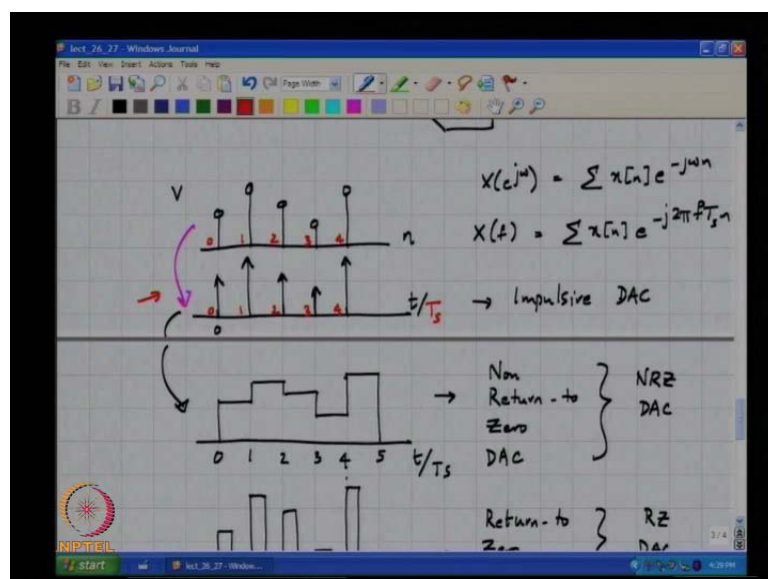 lect_26_27 - Windows Journal
File Edit View Insert Actions Tools Help
Page Width
B I
V
0 1 2 3 4 n
X(e^{jω}) = Σ x[n] e^{-jωn}
X(f) = Σ x[n] e^{-j2πfT_s n}
0 1 2 3 4 t/T_s → Impulsive DAC
0
→ Non Return-to Zero DAC } NRZ DAC
0 1 2 3 4 5 t/T_s
Return-to Zero } RZ DAC
3/4
NPTEL
start
lect_26_27 - Window...
4:28 PM